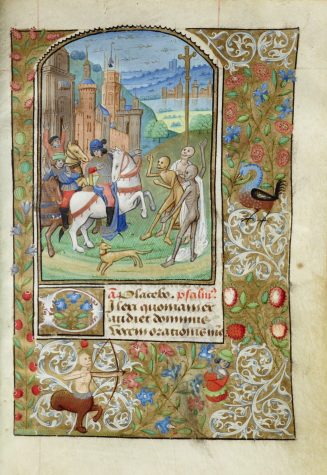 a Placebo. psalmꝰ
Ilexi quoniam ex
audiet dominus
vocem orationis me